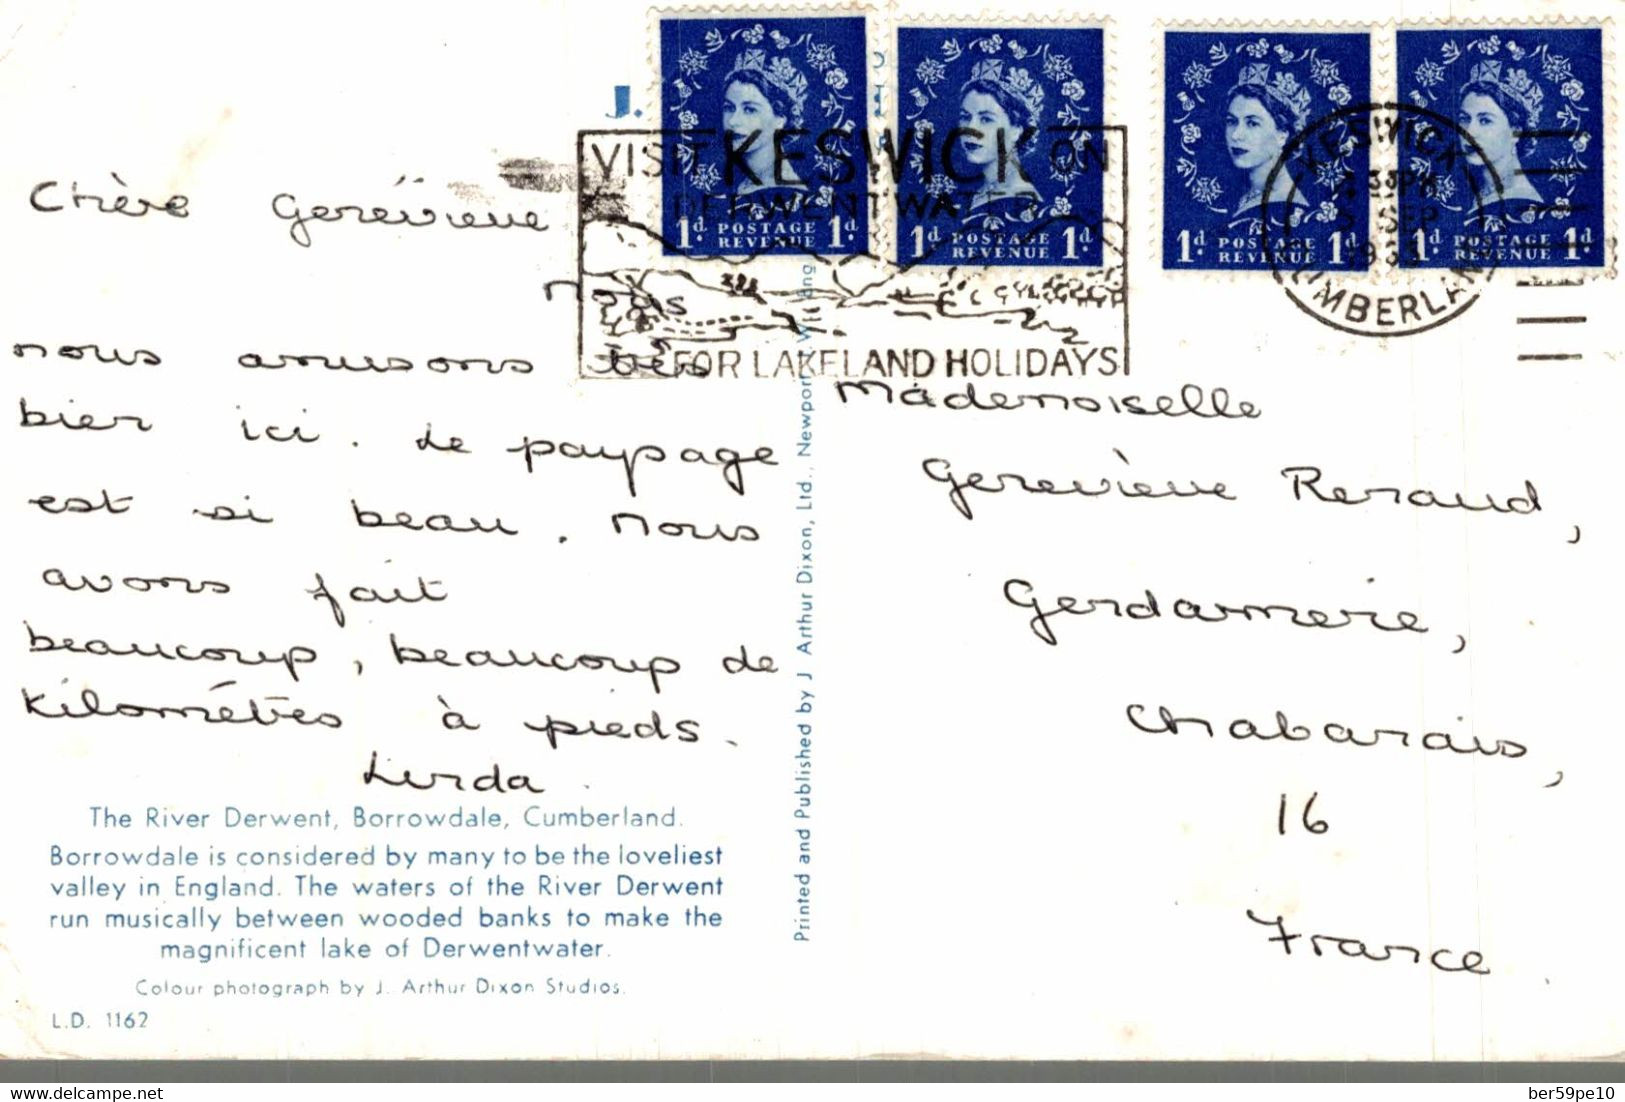 Chère Geneviève
Nous
nous amusons très
bien ici. Le paysage
est si beau. Nous
avons fait
beaucoup, beaucoup de
kilomètres à pieds.
Linda.
The River Derwent, Borrowdale, Cumberland.
Borrowdale is considered by many to be the loveliest
valley in England. The waters of the River Derwent
run musically between wooded banks to make the
magnificent lake of Derwentwater.
Colour photograph by J. Arthur Dixon Studios.
L.D. 1162
J.
Printed and Published by J Arthur Dixon, Ltd., Newport
VISIT KESWICK ON
DERWENTWATER
FOR LAKELAND HOLIDAYS
1d. POSTAGE REVENUE 1d.
1d. POSTAGE REVENUE 1d.
1d. POSTAGE REVENUE 1d.
1d. POSTAGE REVENUE 1d.
KESWICK
SEP
CUMBERLAND
Mademoiselle
Geneviève Renaud,
Gendarmerie,
Chabanais,
16
France.
delcampe.net
ber59pe10